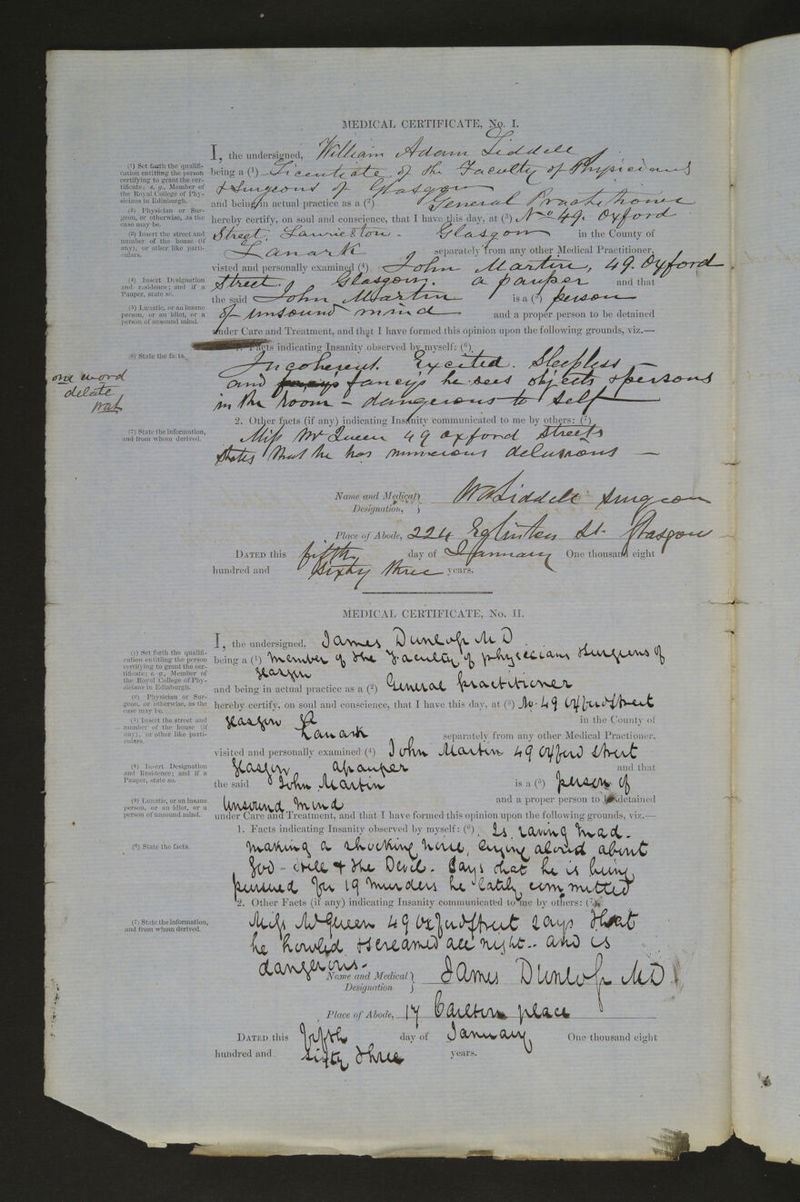 MEDICAL CERTIFICATE, No. I.
I, the undersigned, William Adam Liddell
(1) Set forth the qualification entitling the person certifying to grant the certificate; e. g., Member of the Royal College of Physicians in Edinburgh.
being a (1) Licentiate of the Faculty of Physicians
& Surgeons of Glasgow
(2) Physician or Surgeon, or otherwise, as the case may be.
and being in actual practice as a (2) General Practitioner
hereby certify, on soul and conscience, that I have this day, at (3) No 49. Oxford
(3) Insert the street and number of the house (if any), or other like particulars.
Street, Laurieston - Glasgow in the County of
Lanark separately from any other Medical Practitioner,
visited and personally examined (4) John Martin, 49. Oxford
(4) Insert Designation and residence; and if a Pauper, state so.
Street. Glasgow. a pauper and that
the said John Martin is a (5) person
(5) Lunatic, or an insane person, or an idiot, or a person of unsound mind.
of unsound mind and a proper person to be detained
under Care and Treatment, and that I have formed this opinion upon the following grounds, viz.—
1. Facts indicating Insanity observed by myself: (6)
(6) State the facts.
Incoherent. Excited. Sleepless —
one word
delate
and fancys he sees objects & persons
in the room - dangerous to self
2. Other facts (if any) indicating Insanity communicated to me by others: (7)
(7) State the information, and from whom derived.
Miss Mc Queen 49 Oxford Streets
States that he has numerous delusions —
Name and Medical Designation, } WA Liddell Surgeon
Place of Abode, 224 Eglinton St. Glasgow
DATED this fifth day of January One thousand eight
hundred and Sixty three years.
MEDICAL CERTIFICATE, No. II.
I, the undersigned, James Dunlop M D
(1) Set forth the qualification entitling the person certifying to grant the certificate; e. g., Member of the Royal College of Physicians in Edinburgh.
being a (1) Member of the Faculty of physicians & Surgeons of
Glasgow
(2) Physician or Surgeon, or otherwise, as the case may be.
and being in actual practice as a (2) General practitioner
hereby certify, on soul and conscience, that I have this day, at (3) No. 49 Oxford Street
(3) Insert the street and number of the house (if any), or other like particulars.
Glasgow in the County of
Lanark separately from any other Medical Practitioner,
visited and personally examined (4) John Martin 49 Oxford Street
(4) Insert Designation and Residence; and if a Pauper, state so.
Glasgow a pauper and that
the said John Martin is a (5) person of
(5) Lunatic, or an insane person, or an idiot, or a person of unsound mind.
Unsound Mind and a proper person to be detained
under Care and Treatment, and that I have formed this opinion upon the following grounds, viz.—
1. Facts indicating Insanity observed by myself: (6). Is raving mad.
(6) State the facts.
making a shocking noise, crying aloud about
God - Hell & the Devil. Says that he is being
pursued for 19 murders he lately committed
2. Other Facts (if any) indicating Insanity communicated to me by others: (7)
(7) State the information, and from whom derived.
Miss McQueen 49 Oxford Street says that
he howled & screamed all night.. and is
dangerous.
Name and Medical Designation } James Dunlop MD
Place of Abode, 17 Carlton place
DATED this fifth day of January One thousand eight
hundred and Sixty three years.